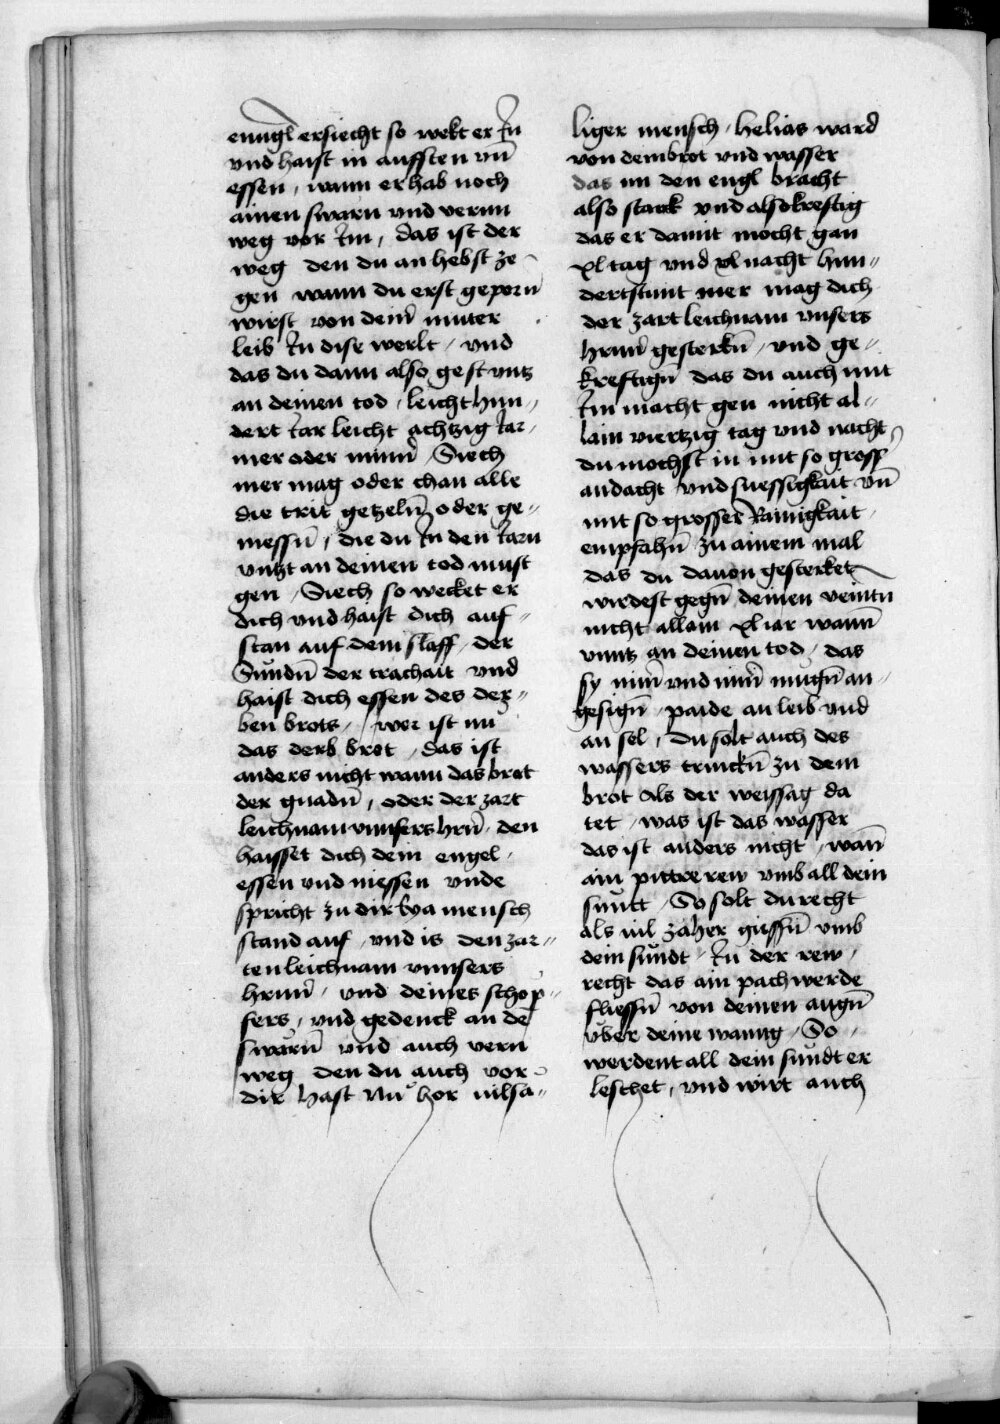 enngl ersiecht so wekt er In
vnd haist in auffsten vn̄
essen, wann er hab noch
ainen swarn vnd verrn
weg vor Im, das ist der
weg den du an hebst ze
gen wann du erst geporn̄
wirst von dem̄ muter
leib In dise werlt / vnd
das du dann also gest vntz
an deinen tod / leicht hun〃
dert Iar leicht achtzig Iar /
mer oder minn̄ Siech
mer mag oder chan alle
die trit getzeln̄ oder ge〃
messn̄ / die du In den Iarn
vntzt an deinen tod must
gen / Siech so wecket er
dich vnd haist dich auf〃
stan auf dem slaff / der
Sundn̄ der trachait vnd
haist dich essen des der〃
ben brots / wer ist nu
das derb brot / das ist
anders nicht wann das brot
der gnadn̄ / oder der zart
leichnam vnnsers hrn̄ / den
haisset dich dein engel /
essen vnd niessen vnde
spricht zu dir eya mensch
stand auf / vnd is den zar〃
ten leichnam vnnsers
hrnn̄ / vnd deines schop〃
fers / vnd gedenck an de̅
swarn̄ vnd auch verrn
weg den du auch vor
dir hast Nu hor vilsa〃
liger mensch / helias ward
von dem brot vnd wasser
das im den engl bracht
also stark vnd also kreftig
das er damit mocht gan
xl tag vnd xl nacht hun〃
dertstunt mer mag dich
der zart leichnam vnsers
hrnn̄ gesterkn̄ / vnd ge〃
kreftign̄ das du auch mit
Im macht gen nicht al〃
lain viertzig tag vnd nacht
du mochst in mit so gross
andacht vnd suessigkait vn̄
mit so grosser Rainigkait
empfahn̄ zu ainem mal
das du dauon gesterket
wirdest gegn̄ deinen veintn
nicht allain xl iar wann̄
vnntz an deinen tod / das
sy nim̄ vnd nim̄ mugn̄ an〃
gesign̄ / paide an leib vnd
an sel / du solt auch des
wassers trinckn̄ zu dem
brot als der weissag da
tet / was ist das wasser
das ist anders nicht / wan̄
ain pittre rew vmb all dein
sunt / So solt du recht
als vil zaher giessn̄ vmb
dein sundt / In der rew /
recht das ain pach werde
fliessn̄ von deinen augn̄
vber deine wanng / So
werdent all dein sundt er
leschet / vnd wirt auch